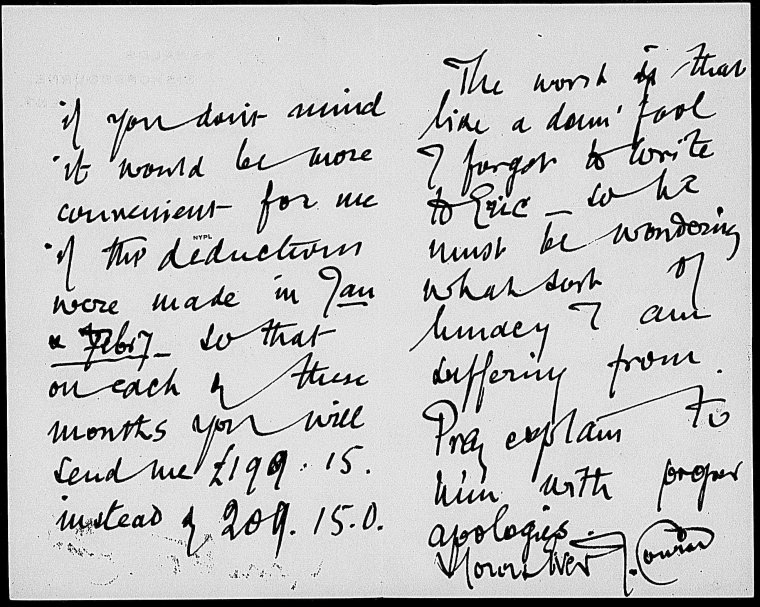 if you don't mind
it would be more
convenient for me
NYPL
if the deductions
were made in Jan
& Feb'y – so that
on each of these
months you will
send me £199. 15.
instead of 209. 15.0.
The worst is that
like a damn' fool
I forgot to write
to Eric – so he
must be wondering
what sort of
lunacy I am
suffering from.
Pray explain to
him with proper
apologies.
Yours ever J. Conrad